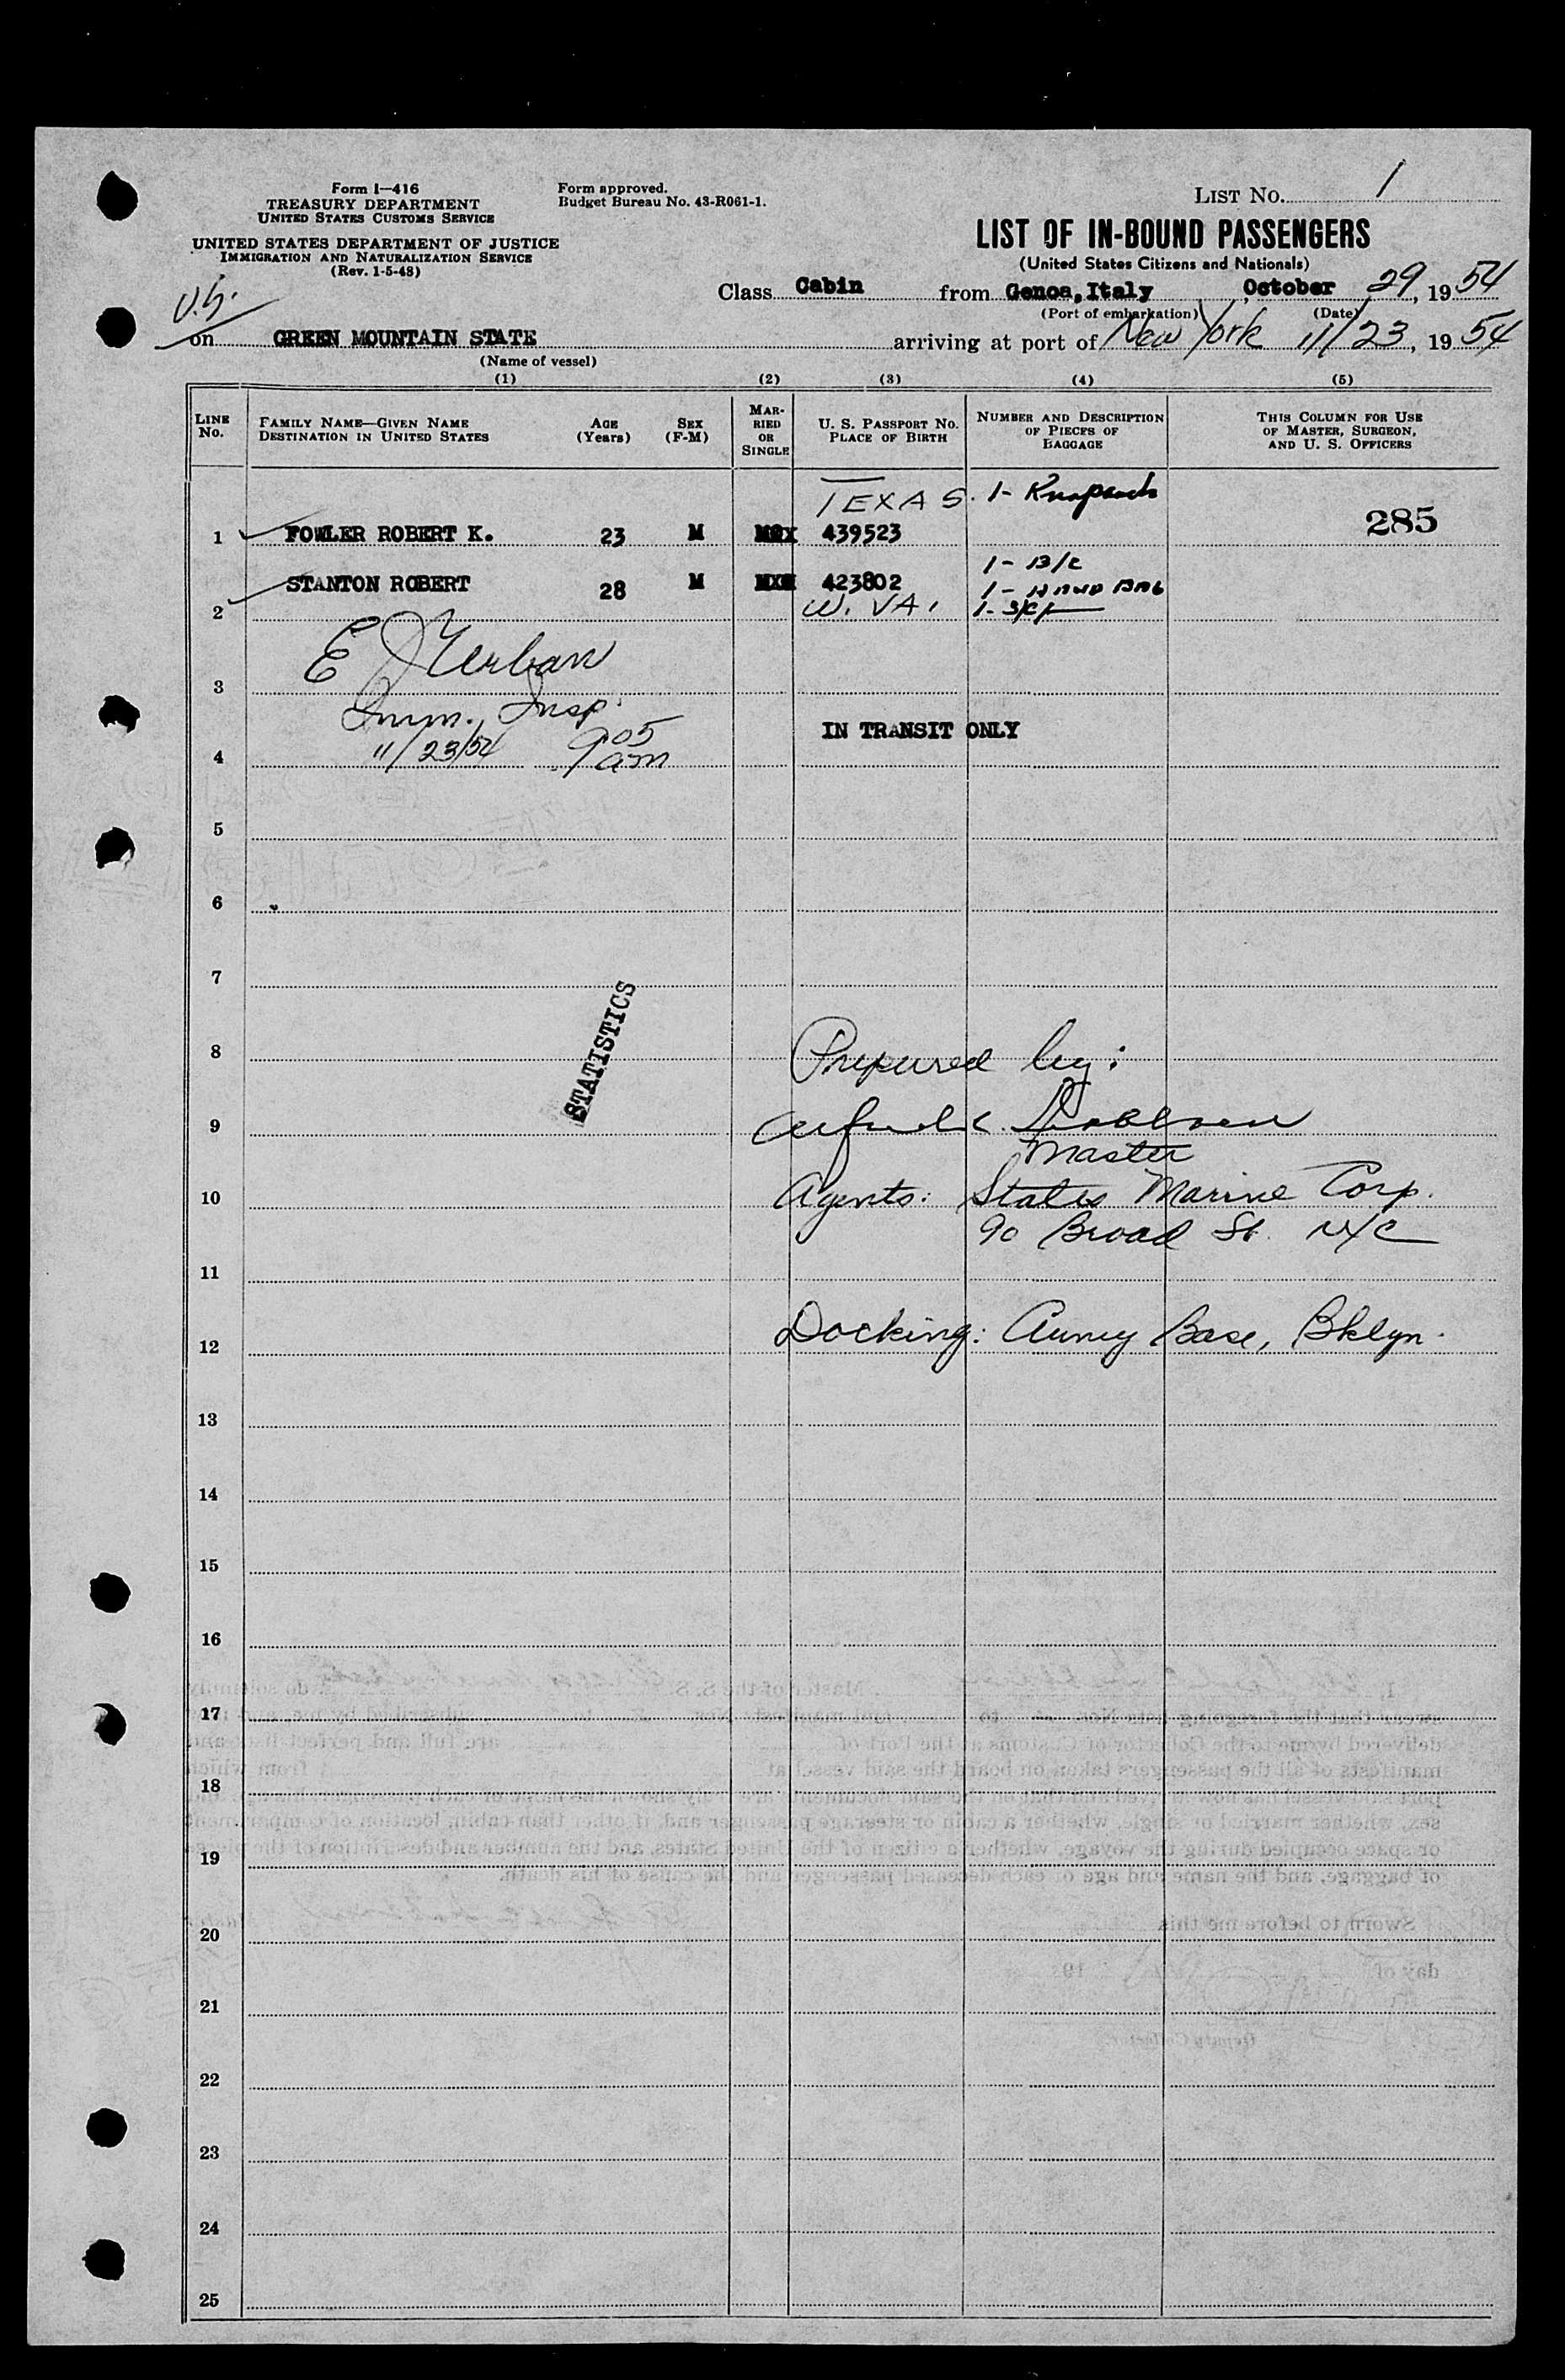 Form I—416
TREASURY DEPARTMENT
UNITED STATES CUSTOMS SERVICE
UNITED STATES DEPARTMENT OF JUSTICE
IMMIGRATION AND NATURALIZATION SERVICE
(Rev. 1-5-48)
Form approved.
Budget Bureau No. 43-R061-1.
LIST No. 1
LIST OF IN-BOUND PASSENGERS
(United States Citizens and Nationals)
Class Cabin from Genoa, Italy, October 29, 1954
(Port of embarkation) (Date)
on GREEN MOUNTAIN STATE arriving at port of New York 11/23, 1954
(Name of vessel)
(1) (2) (3) (4) (5)
LINE No.
FAMILY NAME—GIVEN NAME
DESTINATION IN UNITED STATES
AGE (Years)
SEX (F-M)
MARRIED OR SINGLE
U. S. PASSPORT No.
PLACE OF BIRTH
NUMBER AND DESCRIPTION OF PIECES OF BAGGAGE
THIS COLUMN FOR USE OF MASTER, SURGEON, AND U. S. OFFICERS
TEXAS. 1- Knapsack
1 FOWLER ROBERT K. 23 M 439523 285
1- B/C
STANTON ROBERT 28 M 423802 1- HAND BAG
2 W. VA. 1- S/C
E J Urban
3
Imm. Insp.
IN TRANSIT ONLY
4 11/23/54 905 am
5
6
7
STATISTICS
8 Prepared by:
9
Master
10 Agents: States Marine Corp.
90 Broad St. NYC
11
12 Docking: Army Base, Bklyn.
13
14
15
16
17
18
19
20
21
22
23
24
25